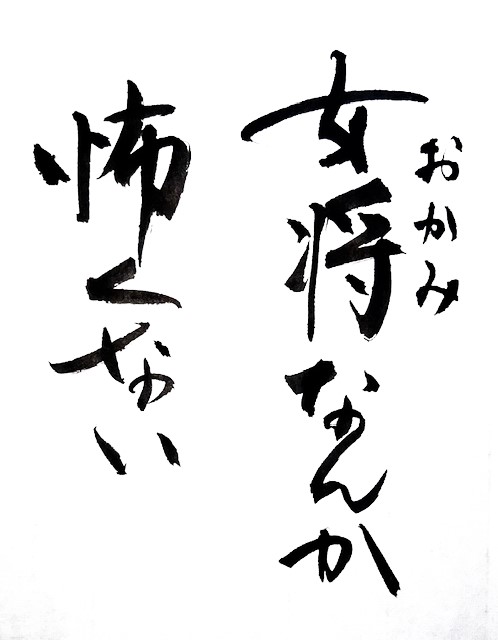 女将なんか
おかみ
怖くない